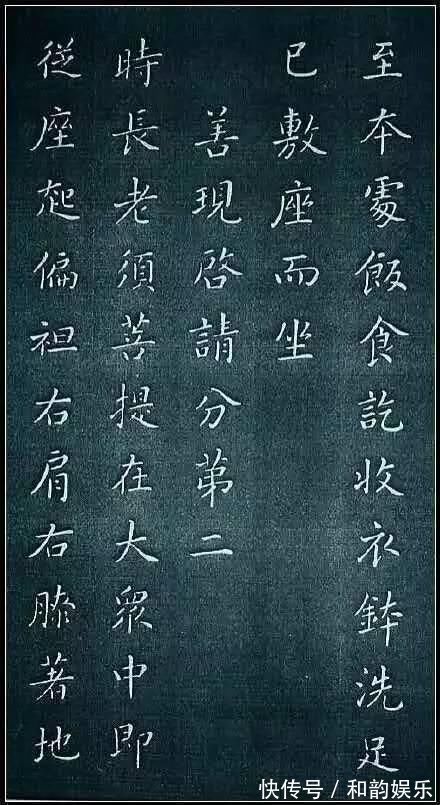 至本處飯食訖收衣鉢洗足
已敷座而坐
善現啓請分第二
時長老須菩提在大眾中即
從座起偏袒右肩右膝著地
快传号 / 和韵娱乐